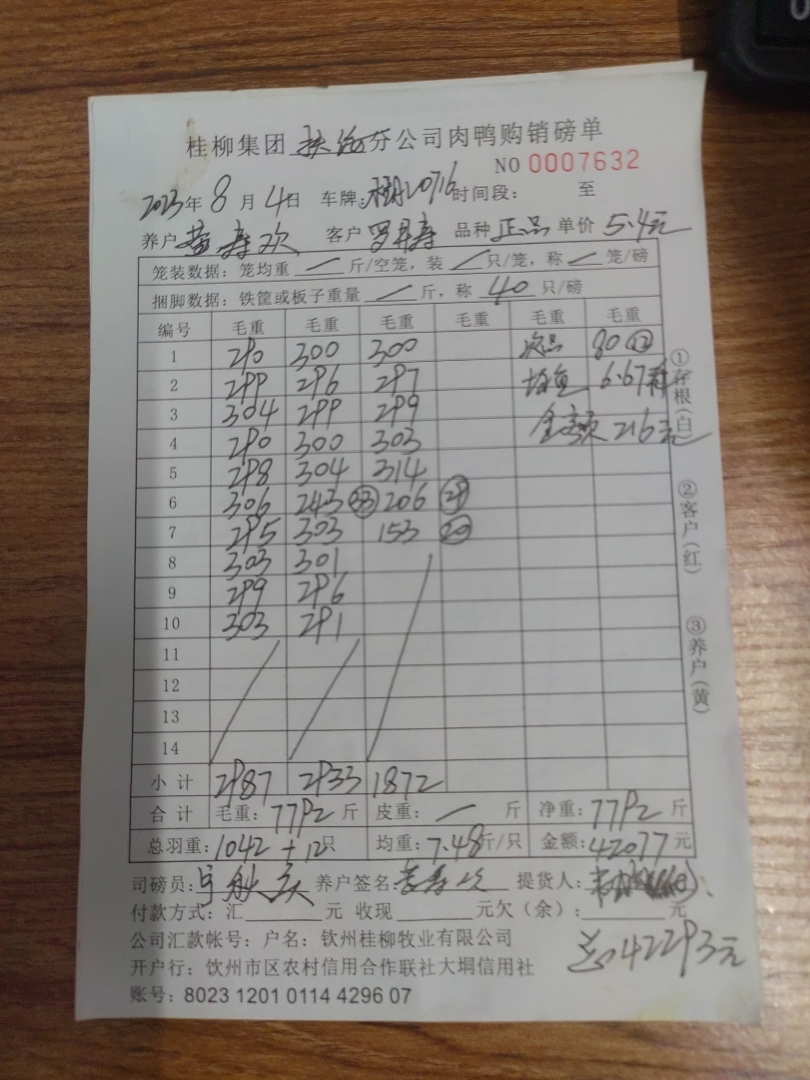 桂柳集团 分公司肉鸭购销磅单
NO 0007632
2023年 8 月 4日 车牌: 20716 时间段: 至
养户 黄寿欢 客户 罗 寿 品种 正品 单价 5.4元
笼装数据: 笼均重 一 斤/空笼, 装 一 只/笼, 称 一 笼/磅
捆脚数据: 铁筐或板子重量 一 斤, 称 40 只/磅
编号 毛重 毛重 毛重 毛重 毛重 毛重
1 290 300 300 次品 80 ⑫
2 299 296 297 均重 6.67斤
3 304 299 299 金额 216元
4 290 300 303
5 298 304 314
6 306 243 ㉝ 206 ㉙
7 295 303 153 ⑳
8 303 301
9 299 296
10 303 291
11
12
13
14
小计 2987 2933 1872
合计 毛重: 7792 斤 皮重: 一 斤 净重: 7792 斤
总羽重: 1042 + 12只 均重: 7.48斤/只 金额: 42077 元
司磅员: 养户签名: 黄寿欢 提货人:
付款方式: 汇 元 收现 元欠(余): 元
公司汇款帐号: 户名: 钦州桂柳牧业有限公司
总42293元
开户行: 饮州市区农村信用合作联社大垌信用社
账号: 8023 1201 0114 4296 07
①存根(白)
②客户(红)
③养户(黄)